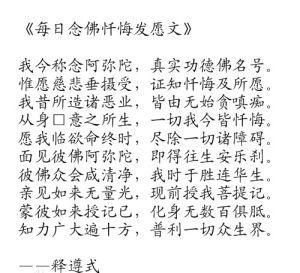 《每日念佛忏悔发愿文》
我今称念阿弥陀，真实功德佛名号。
惟愿慈悲垂摄受，证知忏悔及所愿。
我昔所造诸恶业，皆由无始贪嗔痴。
从身□意之所生，一切我今皆忏悔。
愿我临欲命终时，尽除一切诸障碍。
面见彼佛阿弥陀，即得往生安乐刹。
彼佛众会咸清净，我时于胜莲华生。
亲见如来无量光，现前授我菩提记。
蒙彼如来授记已，化身无数百俱胝。
知力广大遍十方，普利一切众生界。
——释遵式